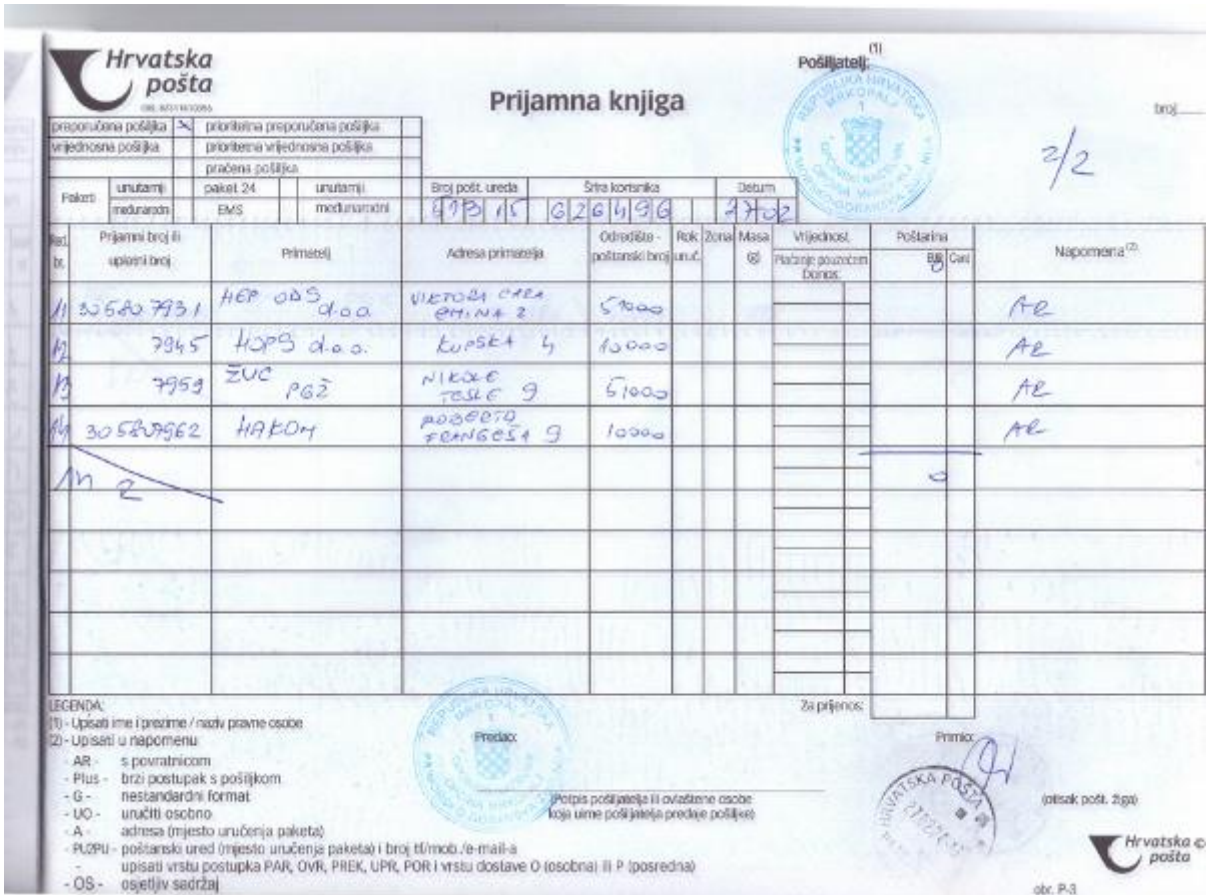 Hrvatska
pošta
Prijamna knjiga
(1)
Pošiljatelj:
REPUBLIKA HRVATSKA
broj
2/2
preporučena pošiljka x prioritetna preporučena pošiljka
vrijednosna pošiljka prioritetna vrijednosna pošiljka
praćena pošiljka
Paketi unutarnji paket 24 unutarnji
međunarodni EMS međunarodni
Broj pošt. ureda Šifra korisnika Datum
626496 2702
Red. br. Prijamni broj ili uplatni broj Primatelj Adresa primatelja Odredište - poštanski broj Rok uruč. Zona Masa (g) Vrijednost Plaćanje pouzećem Donos: Poštarina Cent Napomena (2)
11 305807931 HEP ODS d.o.o. VIKTORA CARA EMINA 2 51000 AR
12 7945 HOPS d.o.o. KUPSKA 4 10000 AR
13 7959 ŽUC PGŽ NIKOLE TESLE 9 51000 AR
14 305807962 HAKOM ROBERTA FRANGEŠA 9 10000 AR
0
Za prijenos:
LEGENDA:
(1) - Upisati ime i prezime / naziv pravne osobe
(2) - Upisati u napomenu
- AR - s povratnicom
- Plus - brzi postupak s pošiljkom
- G - nestandardni format
- UO - uručiti osobno
- A - adresa (mjesto uručenja paketa)
- PU2PU - poštanski ured (mjesto uručenja paketa) i broj tf/mob./e-mail-a
- upisati vrstu postupka PAR, OVR, PREK, UPR, POR i vrstu dostave O (osobna) ili P (posredna)
- OS - osjetljiv sadržaj
Predao:
(Potpis pošiljatelja ili ovlaštene osobe
koja u ime pošiljatelja predaje pošiljke)
Primio:
HRVATSKA POŠTA
(otisak pošt. žiga)
Hrvatska
pošta
obr. P-3